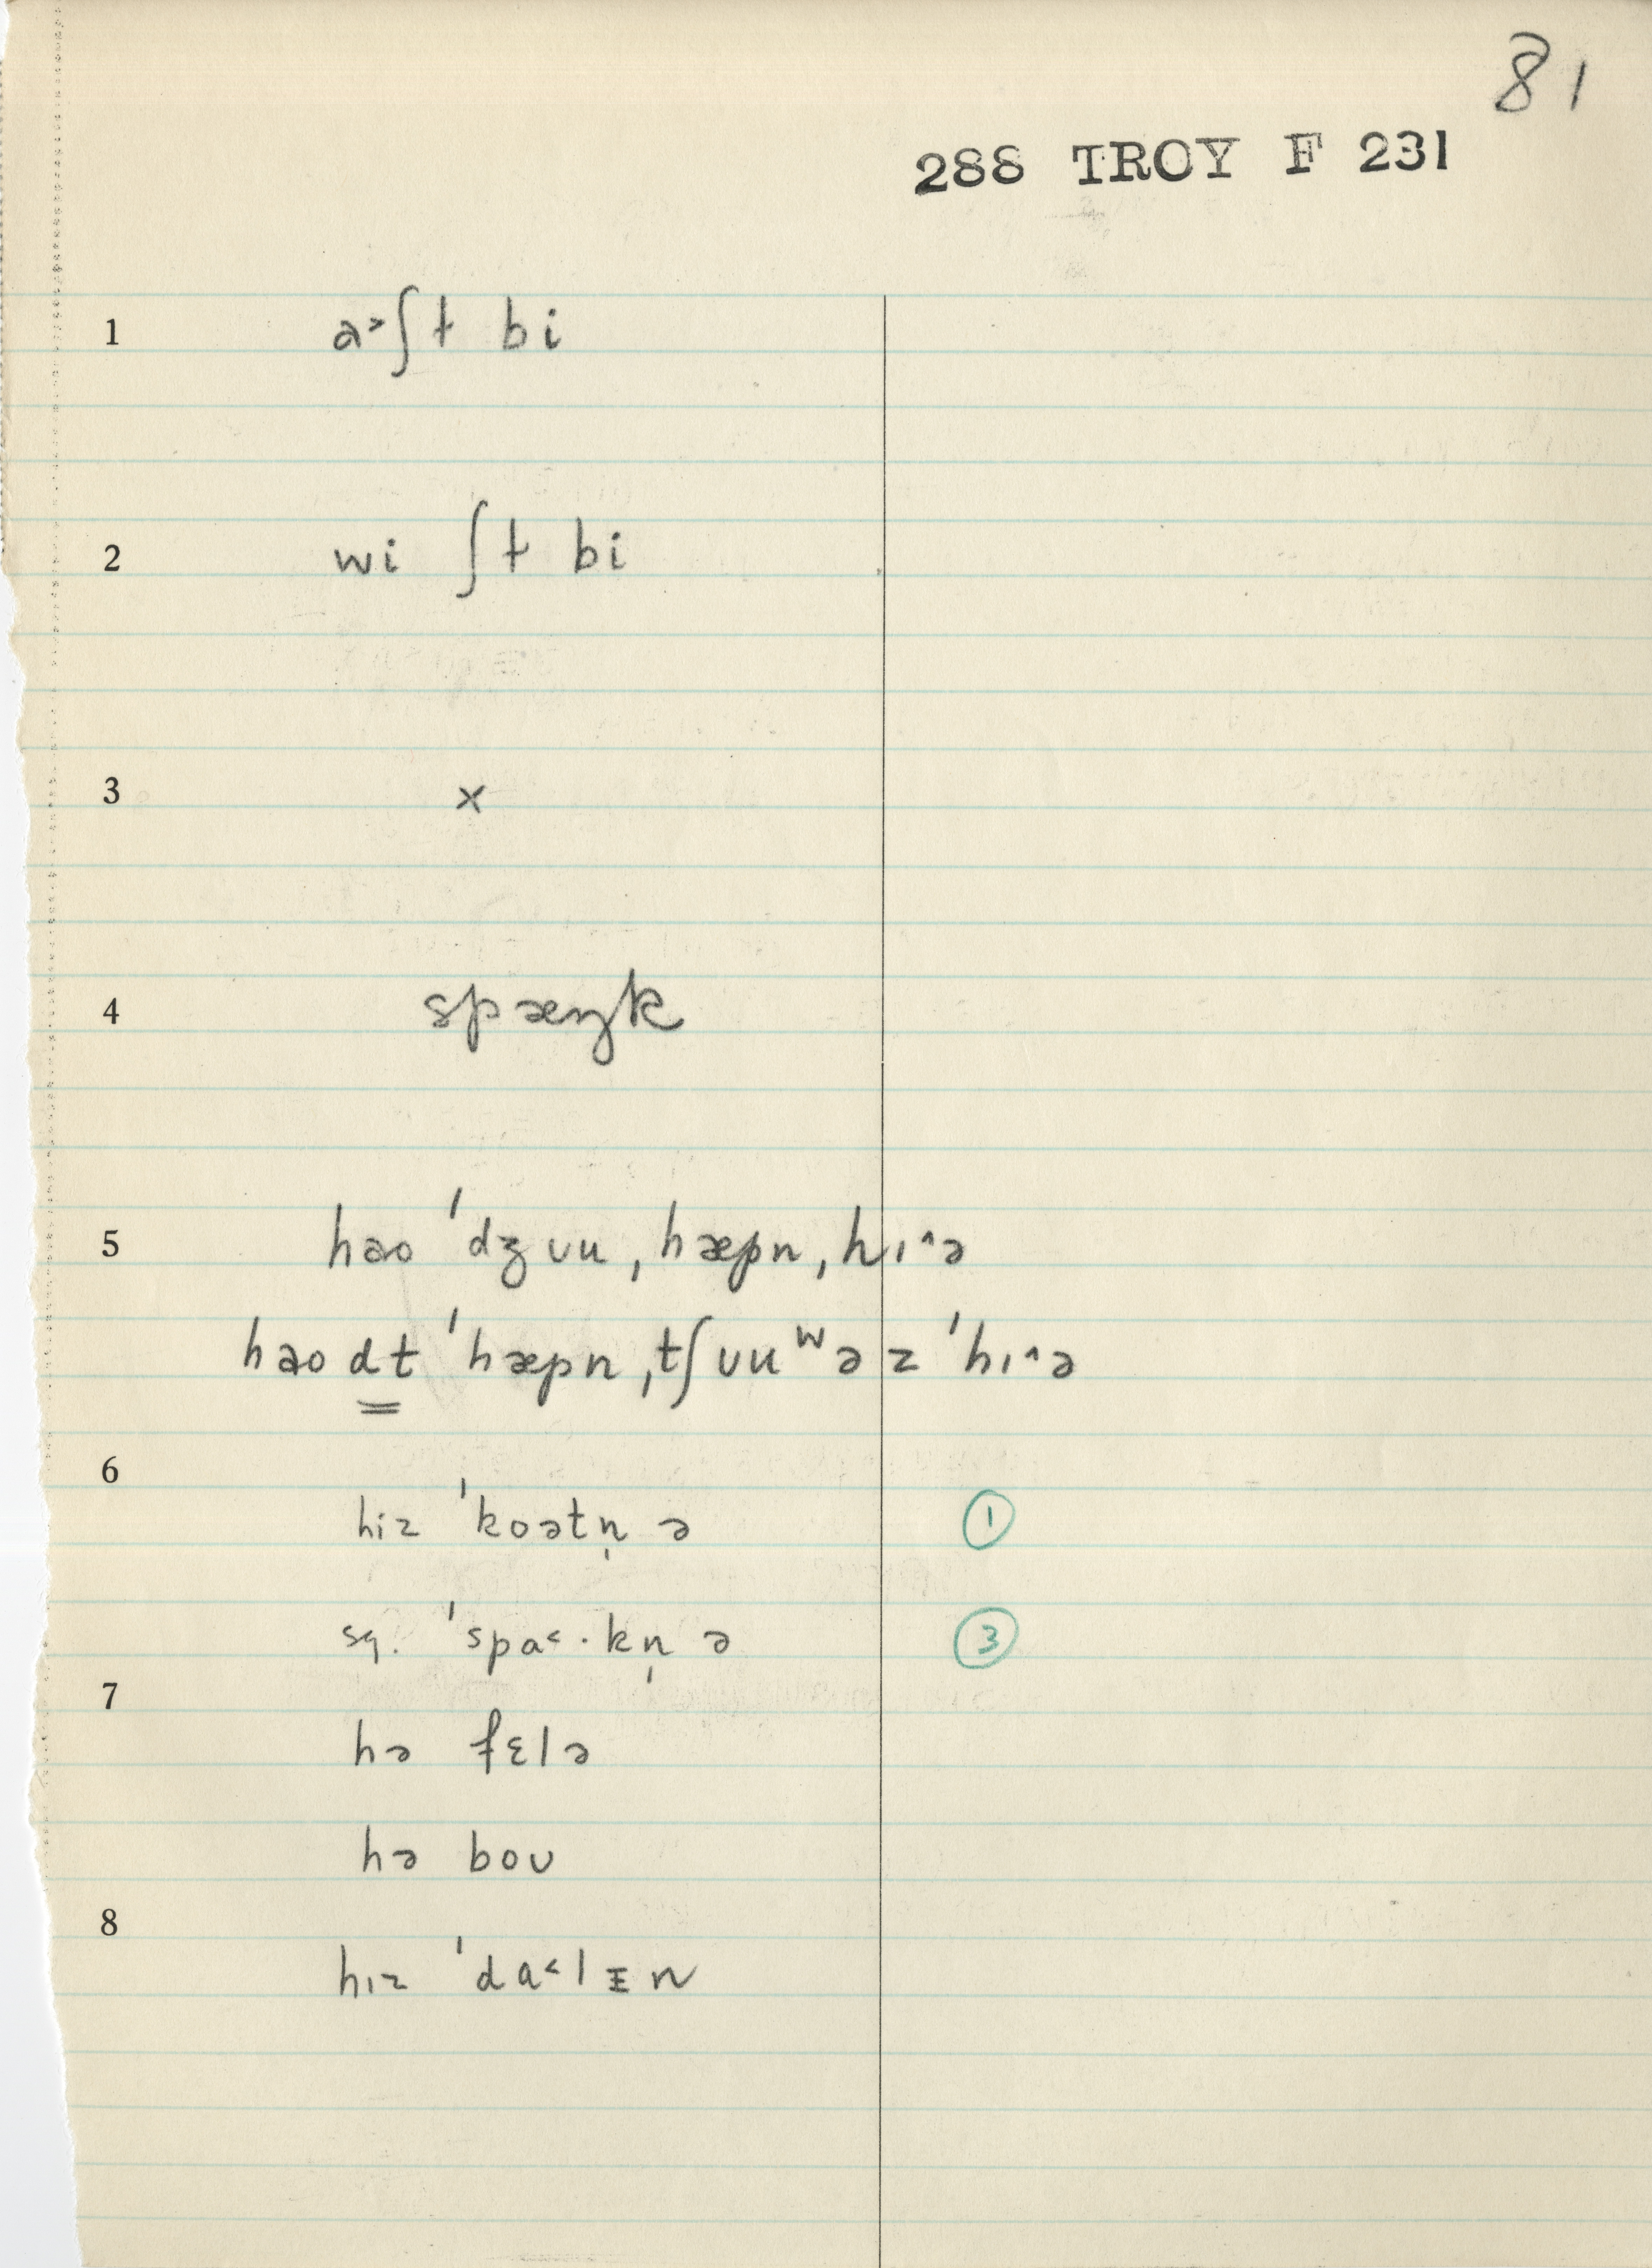 81
288 TROY F 231
1 a˃ʃt bi
2 wi ʃt bi
3 x
4 spæŋk
5 hɑo ˈdʒʊu, hæpn, hɪ˄ə
hɑo dt ˈhæpn, tʃʊuʷəz ˈhɪ˄ə
6
hiz ˈkoətn̩ ə ①
sq. ˈspa˂·kn̩ ə ③
7
hə fɛlə
hə boʊ
8
hɪz ˈda˂lɪn